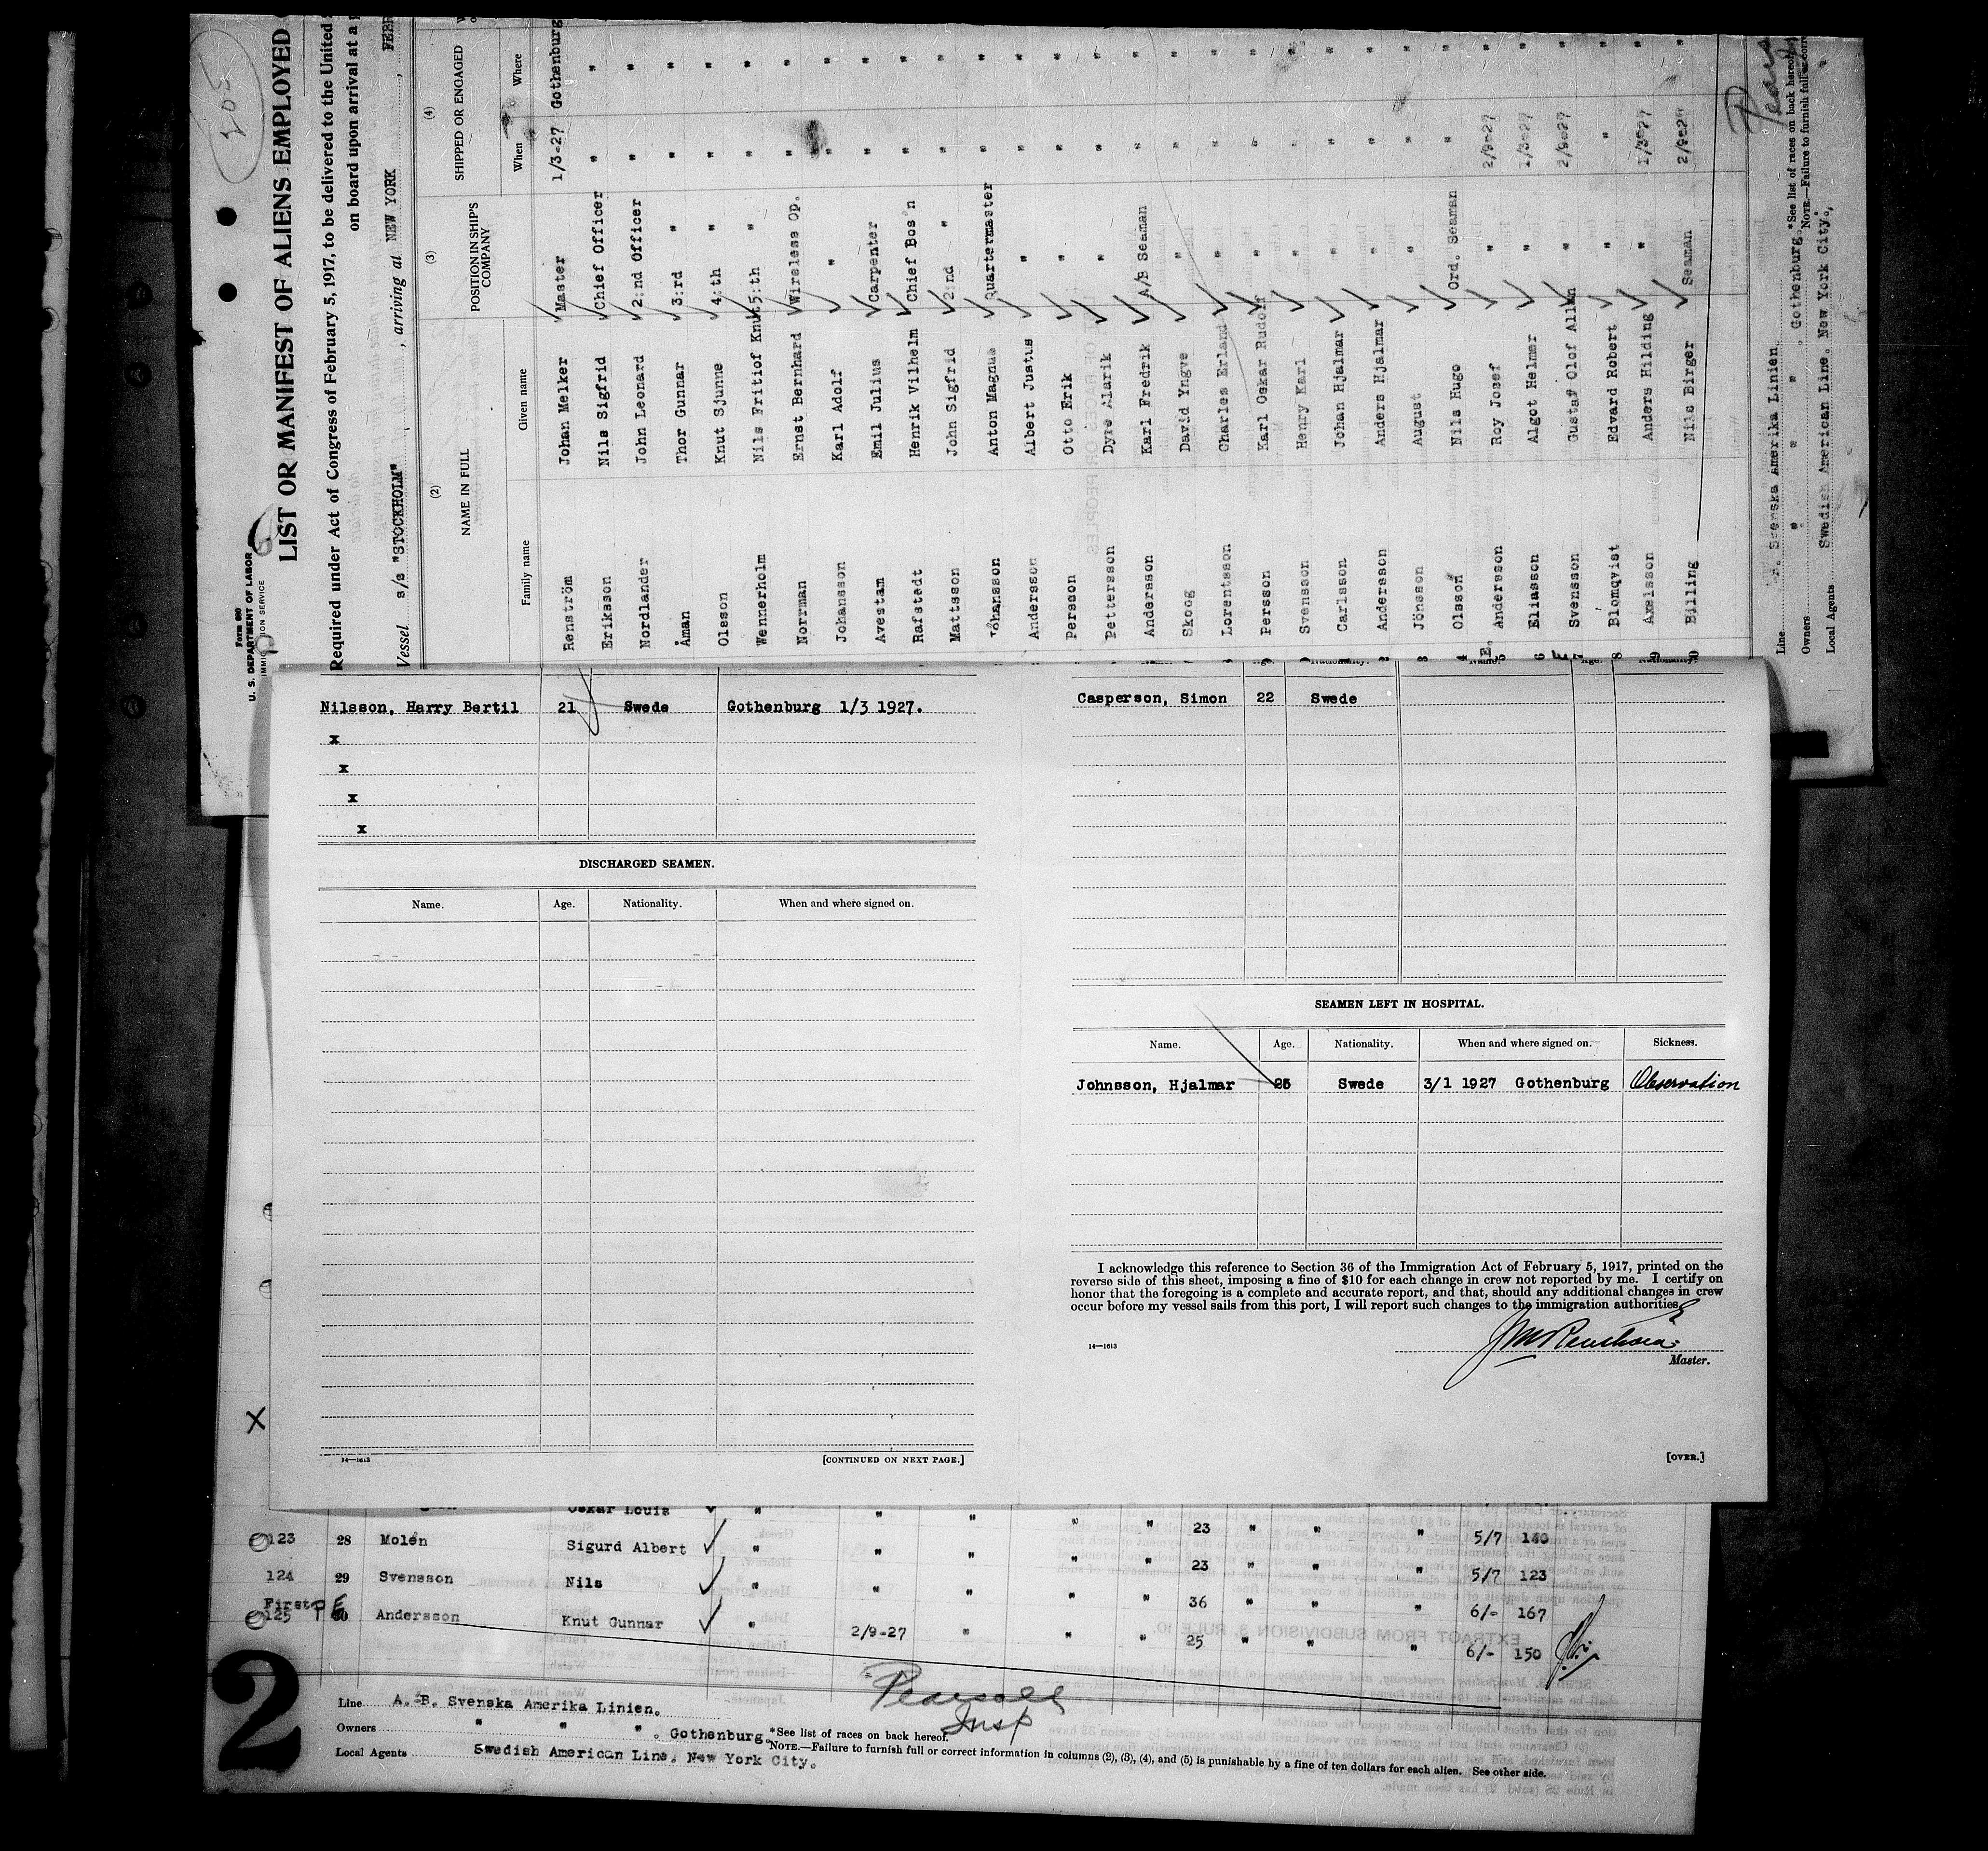 205
Form 680
U. S. DEPARTMENT OF LABOR
IMMIGRATION SERVICE
6
LIST OR MANIFEST OF ALIENS EMPLOYED
Required under Act of Congress of February 5, 1917, to be delivered to the United
on board upon arrival at a
Vessel s/s "STOCKHOLM", arriving at NEW YORK, FEBR
(2) (3) (4)
NAME IN FULL POSITION IN SHIP'S COMPANY SHIPPED OR ENGAGED
Family name Given name When Where
Renström Johan Melker Master 1/3-27 Gothenburg
Eriksson Nils Sigfrid Chief Officer " "
Nordlander John Leonard 2:nd Officer " "
Åman Thor Gunnar 3:rd " " "
Olsson Knut Sjunne 4:th " " "
Wennerholm Nils Fritiof Knut 5:th " " "
Norrman Ernst Bernhard Wireless Op. " "
Johansson Karl Adolf " " "
Avestam Emil Julius Carpenter " "
Rafstedt Henrik Vilhelm Chief Bos'n " "
Mattsson John Sigfrid 2:nd " " "
Johansson Anton Magnus Quartermaster " "
Andersson Albert Justus " " "
Persson Otto Erik " " "
Pettersson Dyre Alarik " " "
Andersson Karl Fredrik A/B Seaman " "
Skoog David Yngve " " "
Lorentsson Charles Erland " " "
Persson Karl Oskar Rudolf " " "
Svensson Henry Karl " " "
Carlsson Johan Hjalmar " " "
Andersson Anders Hjalmar " " "
Jönsson August " " "
Olsson Nils Hugo Ord. Seaman " "
Andersson Roy Josef " 2/9-27 "
Eliasson Algot Helmer " 1/3-27 "
Svensson Gustaf Olof Allan " 2/9-27 "
Blomqvist Edvard Robert " " "
Axelsson Anders Hilding " 1/3-27 "
Billing Nils Birger Seaman 2/9-27 "
Line Svenska Amerika Linien
Owners " " " . Gothenburg.
Local Agents Swedish American Line. New York City.
*See list of races on back hereof.
NOTE.—Failure to furnish full or corre
Nilsson, Harry Bertil 21 Swede Gothenburg 1/3 1927.
x
x
x
x
DISCHARGED SEAMEN.
Name. Age. Nationality. When and where signed on.
14—1613
[CONTINUED ON NEXT PAGE.]
Casperson, Simon 22 Swede
SEAMEN LEFT IN HOSPITAL.
Name. Age. Nationality. When and where signed on. Sickness.
Johnsson, Hjalmar 25 Swede 3/1 1927 Gothenburg Observation
I acknowledge this reference to Section 36 of the Immigration Act of February 5, 1917, printed on the
reverse side of this sheet, imposing a fine of $10 for each change in crew not reported by me. I certify on
honor that the foregoing is a complete and accurate report, and that, should any additional changes in crew
occur before my vessel sails from this port, I will report such changes to the immigration authorities.
14—1613
Master.
[OVER.]
X
Oskar Louis " " " " "
123 28 Molén Sigurd Albert " " " " " 23 " " " 5/7 140
124 29 Svensson Nils " " " " " 23 " " " 5/7 123
First P E
125 30 Andersson Knut Gunnar " 2/9-27 " " " 36 " " " 6/- 167
25 " " " 6/- 150
2
Pearsall
Insp
Line A. B. Svenska Amerika Linien.
Owners " " " . Gothenburg.
Local Agents Swedish American Line. New York City.
*See list of races on back hereof.
NOTE.—Failure to furnish full or correct information in columns (2), (3), (4), and (5) is punishable by a fine of ten dollars for each alien. See other side.